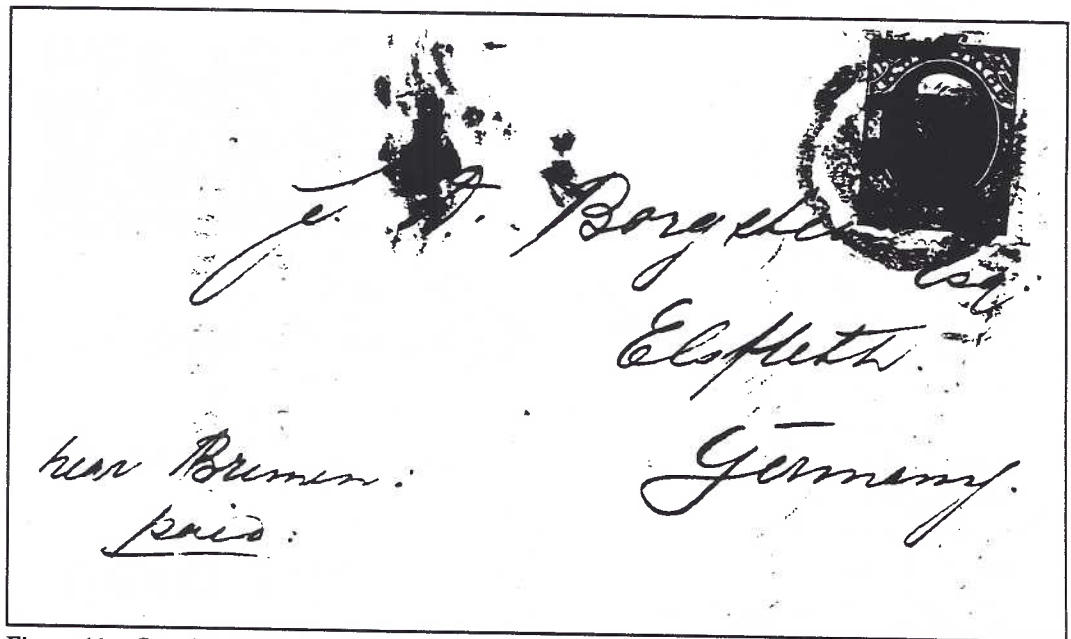 J. Borgstede Esq.
Elsfleth.
Germany.
near Bremen:
paid: